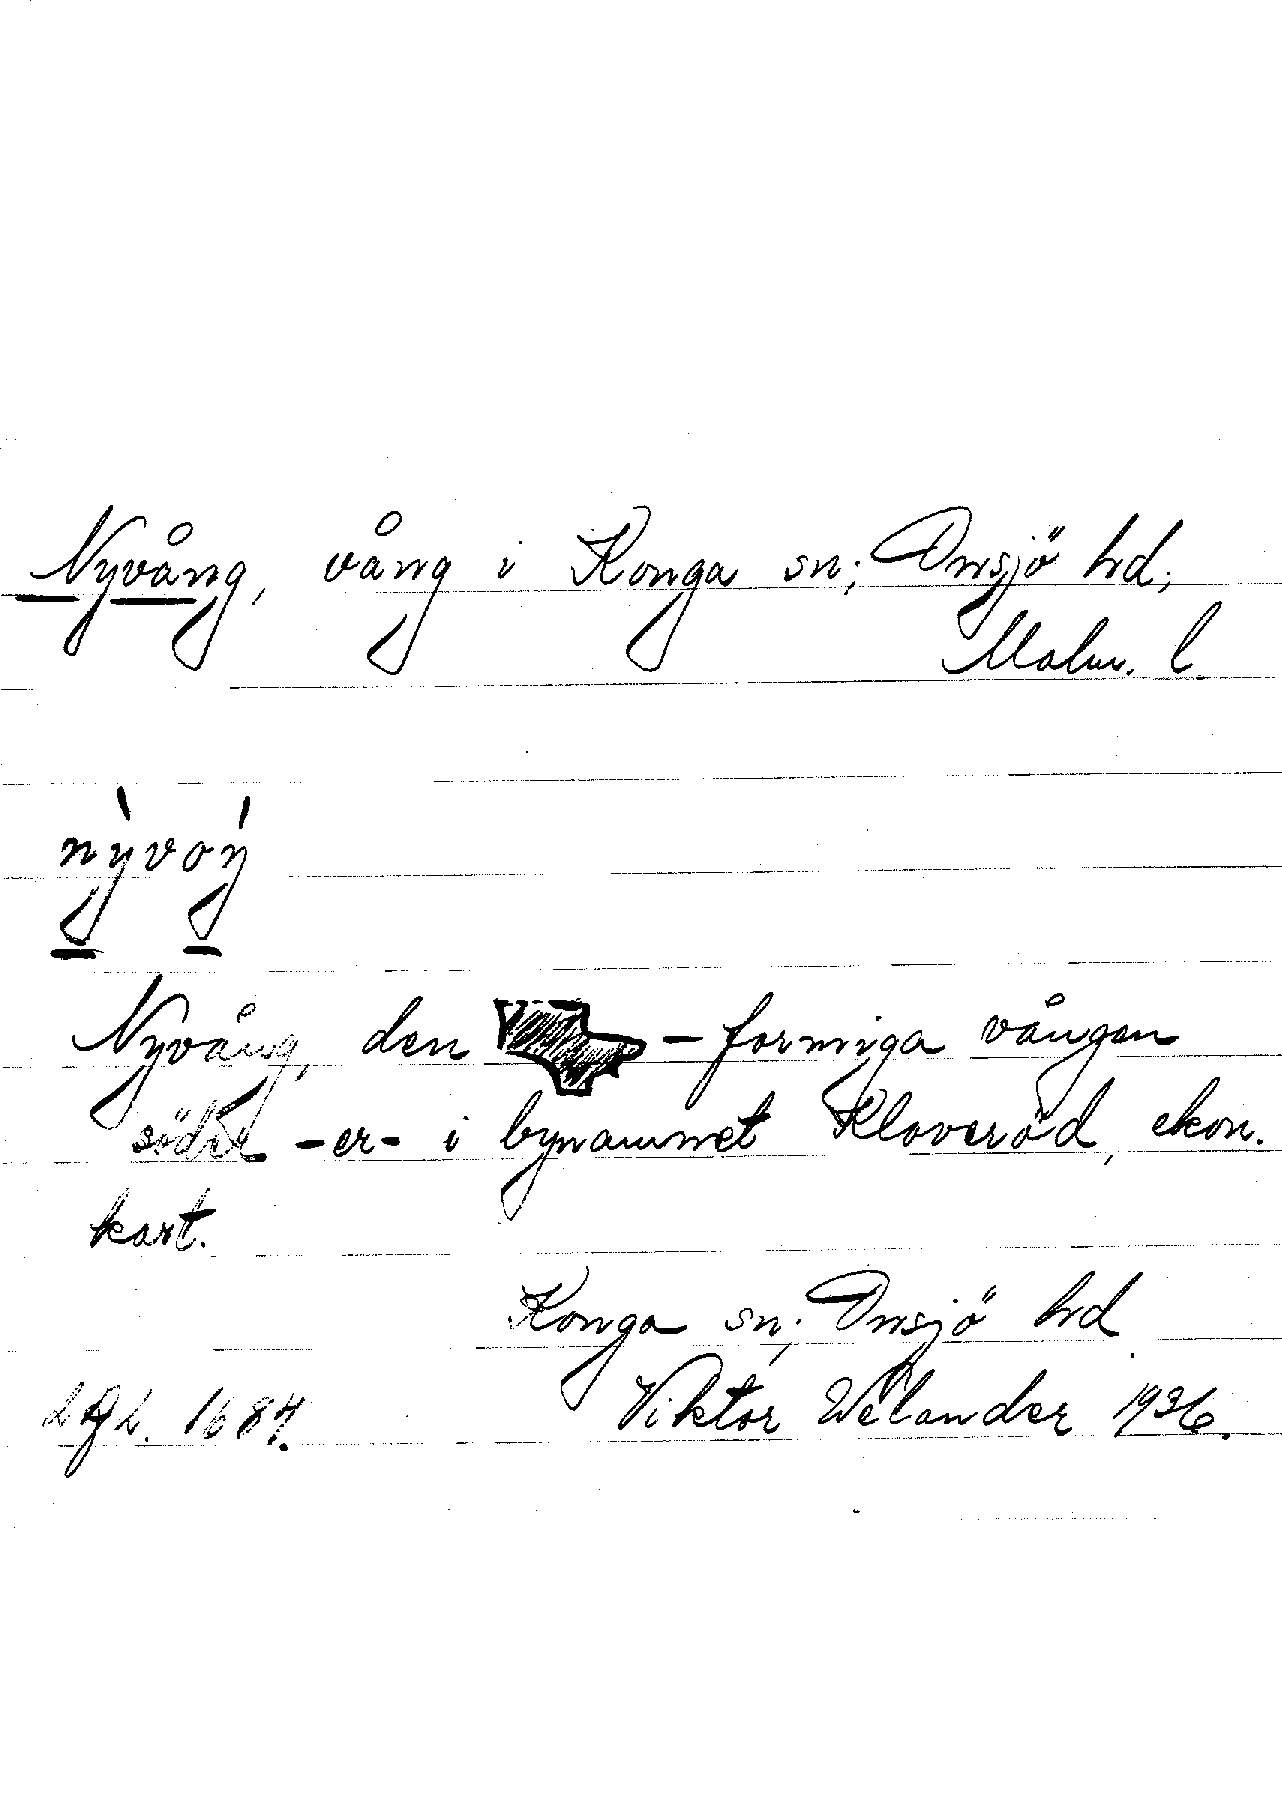 Nyvång, vång i Konga sn; Onsjö hd;
Malm. l.
nývoŋ́
Nyvång, den -formiga vången
södre -er- i bynamnet Klåveröd, ekon.
kart.
Konga sn; Onsjö hd
1684. Viktor Welander 1936.